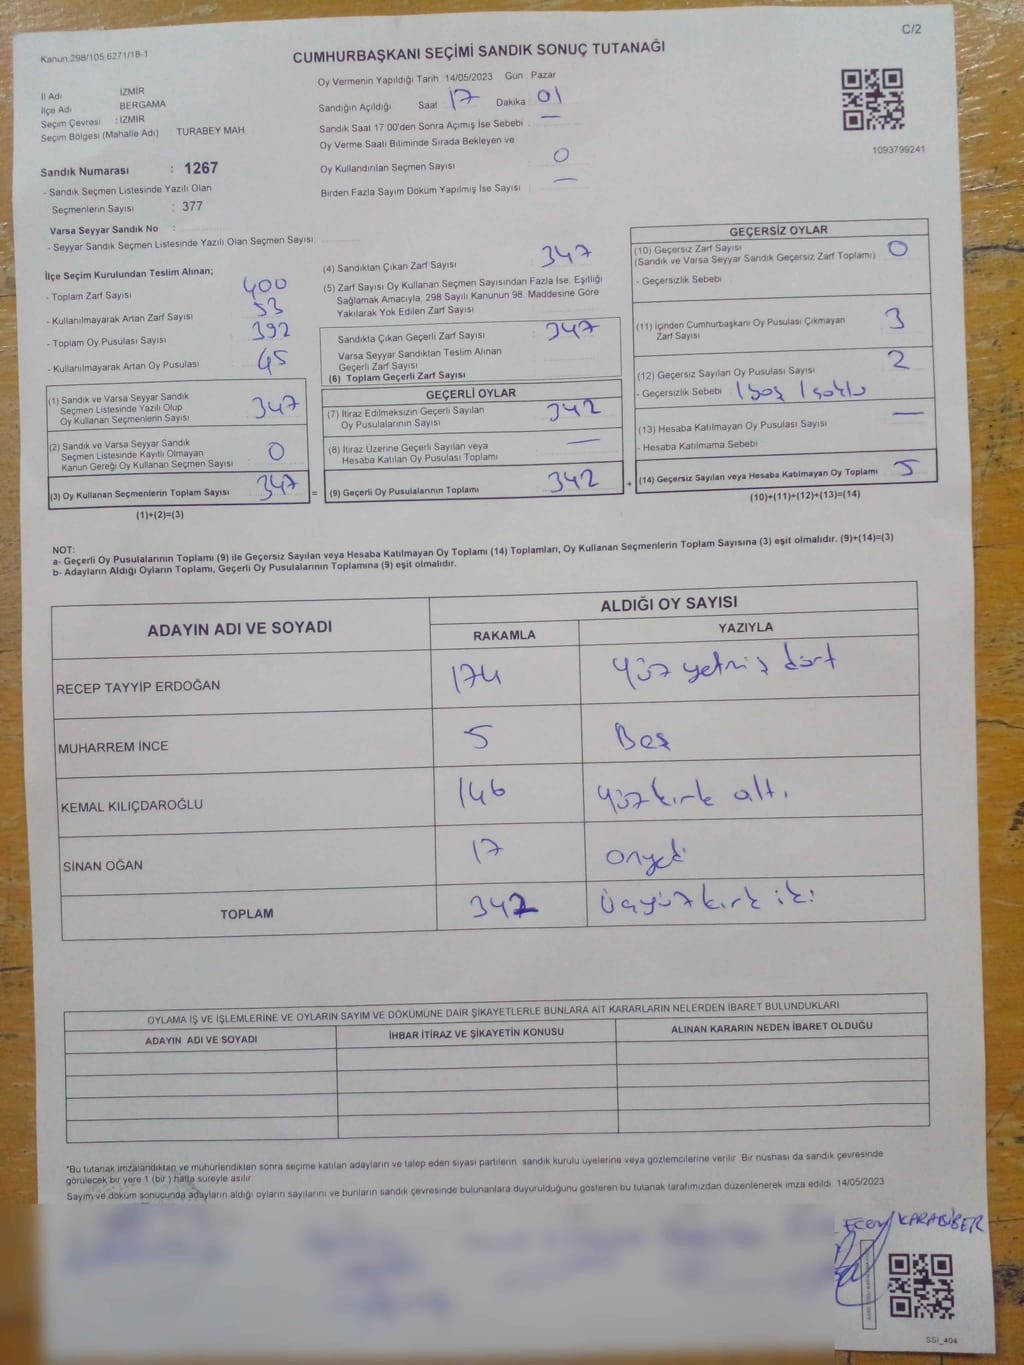 C/2
Kanun.298/105.6271/18-1
CUMHURBAŞKANI SEÇİMİ SANDIK SONUÇ TUTANAĞI
İl Adı İZMİR
İlçe Adı BERGAMA
Seçim Çevresi : İZMİR
Seçim Bölgesi (Mahalle Adı) TURABEY MAH
Sandık Numarası : 1267
- Sandık Seçmen Listesinde Yazılı Olan
Seçmenlerin Sayısı : 377
Varsa Seyyar Sandık No :
- Seyyar Sandık Seçmen Listesinde Yazılı Olan Seçmen Sayısı:
Oy Vermenin Yapıldığı Tarih :14/05/2023 Gün : Pazar
Sandığın Açıldığı Saat 17 Dakika 01
Sandık Saat 17:00'den Sonra Açımış İse Sebebi : —
Oy Verme Saati Bitiminde Sırada Bekleyen ve
Oy Kullandırılan Seçmen Sayısı 0
Birden Fazla Sayım Döküm Yapılmış İse Sayısı —
1093799241
İlçe Seçim Kurulundan Teslim Alınan;
- Toplam Zarf Sayısı 400
- Kullanılmayarak Artan Zarf Sayısı 53
- Toplam Oy Pusulası Sayısı 392
- Kullanılmayarak Artan Oy Pusulası 45
(1) Sandık ve Varsa Seyyar Sandık
Seçmen Listesinde Yazılı Olup
Oy Kullanan Seçmenlerin Sayısı 347
(2) Sandık ve Varsa Seyyar Sandık
Seçmen Listesinde Kayıtlı Olmayan
Kanun Gereği Oy Kullanan Seçmen Sayısı 0
(3) Oy Kullanan Seçmenlerin Toplam Sayısı 347 =
(1)+(2)=(3)
(4) Sandıktan Çıkan Zarf Sayısı 347
(5) Zarf Sayısı Oy Kullanan Seçmen Sayısından Fazla İse, Eşitliği
Sağlamak Amacıyla, 298 Sayılı Kanunun 98. Maddesine Göre
Yakılarak Yok Edilen Zarf Sayısı
Sandıkta Çıkan Geçerli Zarf Sayısı 347
Varsa Seyyar Sandıktan Teslim Alınan
Geçerli Zarf Sayısı
(6) Toplam Geçerli Zarf Sayısı
GEÇERLİ OYLAR
(7) İtiraz Edilmeksizin Geçerli Sayılan
Oy Pusulalarının Sayısı 342
(8) İtiraz Üzerine Geçerli Sayılan veya
Hesaba Katılan Oy Pusulası Toplamı —
(9) Geçerli Oy Pusulalarının Toplamı 342 +
GEÇERSİZ OYLAR
(10) Geçersiz Zarf Sayısı
(Sandık ve Varsa Seyyar Sandık Geçersiz Zarf Toplamı) 0
- Geçersizlik Sebebi
(11) İçinden Cumhurbaşkanı Oy Pusulası Çıkmayan
Zarf Sayısı 3
(12) Geçersiz Sayılan Oy Pusulası Sayısı 2
- Geçersizlik Sebebi 1 boş 1
(13) Hesaba Katılmayan Oy Pusulası Sayısı —
- Hesaba Katılmama Sebebi
(14) Geçersiz Sayılan veya Hesaba Katılmayan Oy Toplamı 5
(10)+(11)+(12)+(13)=(14)
NOT:
a- Geçerli Oy Pusulalarının Toplamı (9) ile Geçersiz Sayılan veya Hesaba Katılmayan Oy Toplamı (14) Toplamları, Oy Kullanan Seçmenlerin Toplam Sayısına (3) eşit olmalıdır. (9)+(14)=(3)
b- Adayların Aldığı Oyların Toplamı, Geçerli Oy Pusulalarının Toplamına (9) eşit olmalıdır.
ADAYIN ADI VE SOYADI ALDIĞI OY SAYISI
RAKAMLA YAZIYLA
RECEP TAYYİP ERDOĞAN 174 yüz yetmiş dört
MUHARREM İNCE 5 Beş
KEMAL KILIÇDAROĞLU 146 yüzkırk altı
SİNAN OĞAN 17 onyedi
TOPLAM 342 üçyüzkırk iki
OYLAMA İŞ VE İŞLEMLERİNE VE OYLARIN SAYIM VE DÖKÜMÜNE DAİR ŞİKAYETLERLE BUNLARA AİT KARARLARIN NELERDEN İBARET BULUNDUKLARI
ADAYIN ADI VE SOYADI İHBAR İTİRAZ VE ŞİKAYETİN KONUSU ALINAN KARARIN NEDEN İBARET OLDUĞU
*Bu tutanak imzalandıktan ve mühürlendikten sonra seçime katılan adayların ve talep eden siyasi partilerin sandık kurulu üyelerine veya gözlemcilerine verilir. Bir nüshası da sandık çevresinde
görülecek bir yere 1 (bir) hafta süreyle asılır
Sayım ve döküm sonucunda adayların aldığı oyların sayılarını ve bunların sandık çevresinde bulunanlara duyurulduğunu gösteren bu tutanak tarafımızdan düzenlenerek imza edildi. 14/05/2023
KARABİBER
SSI_404